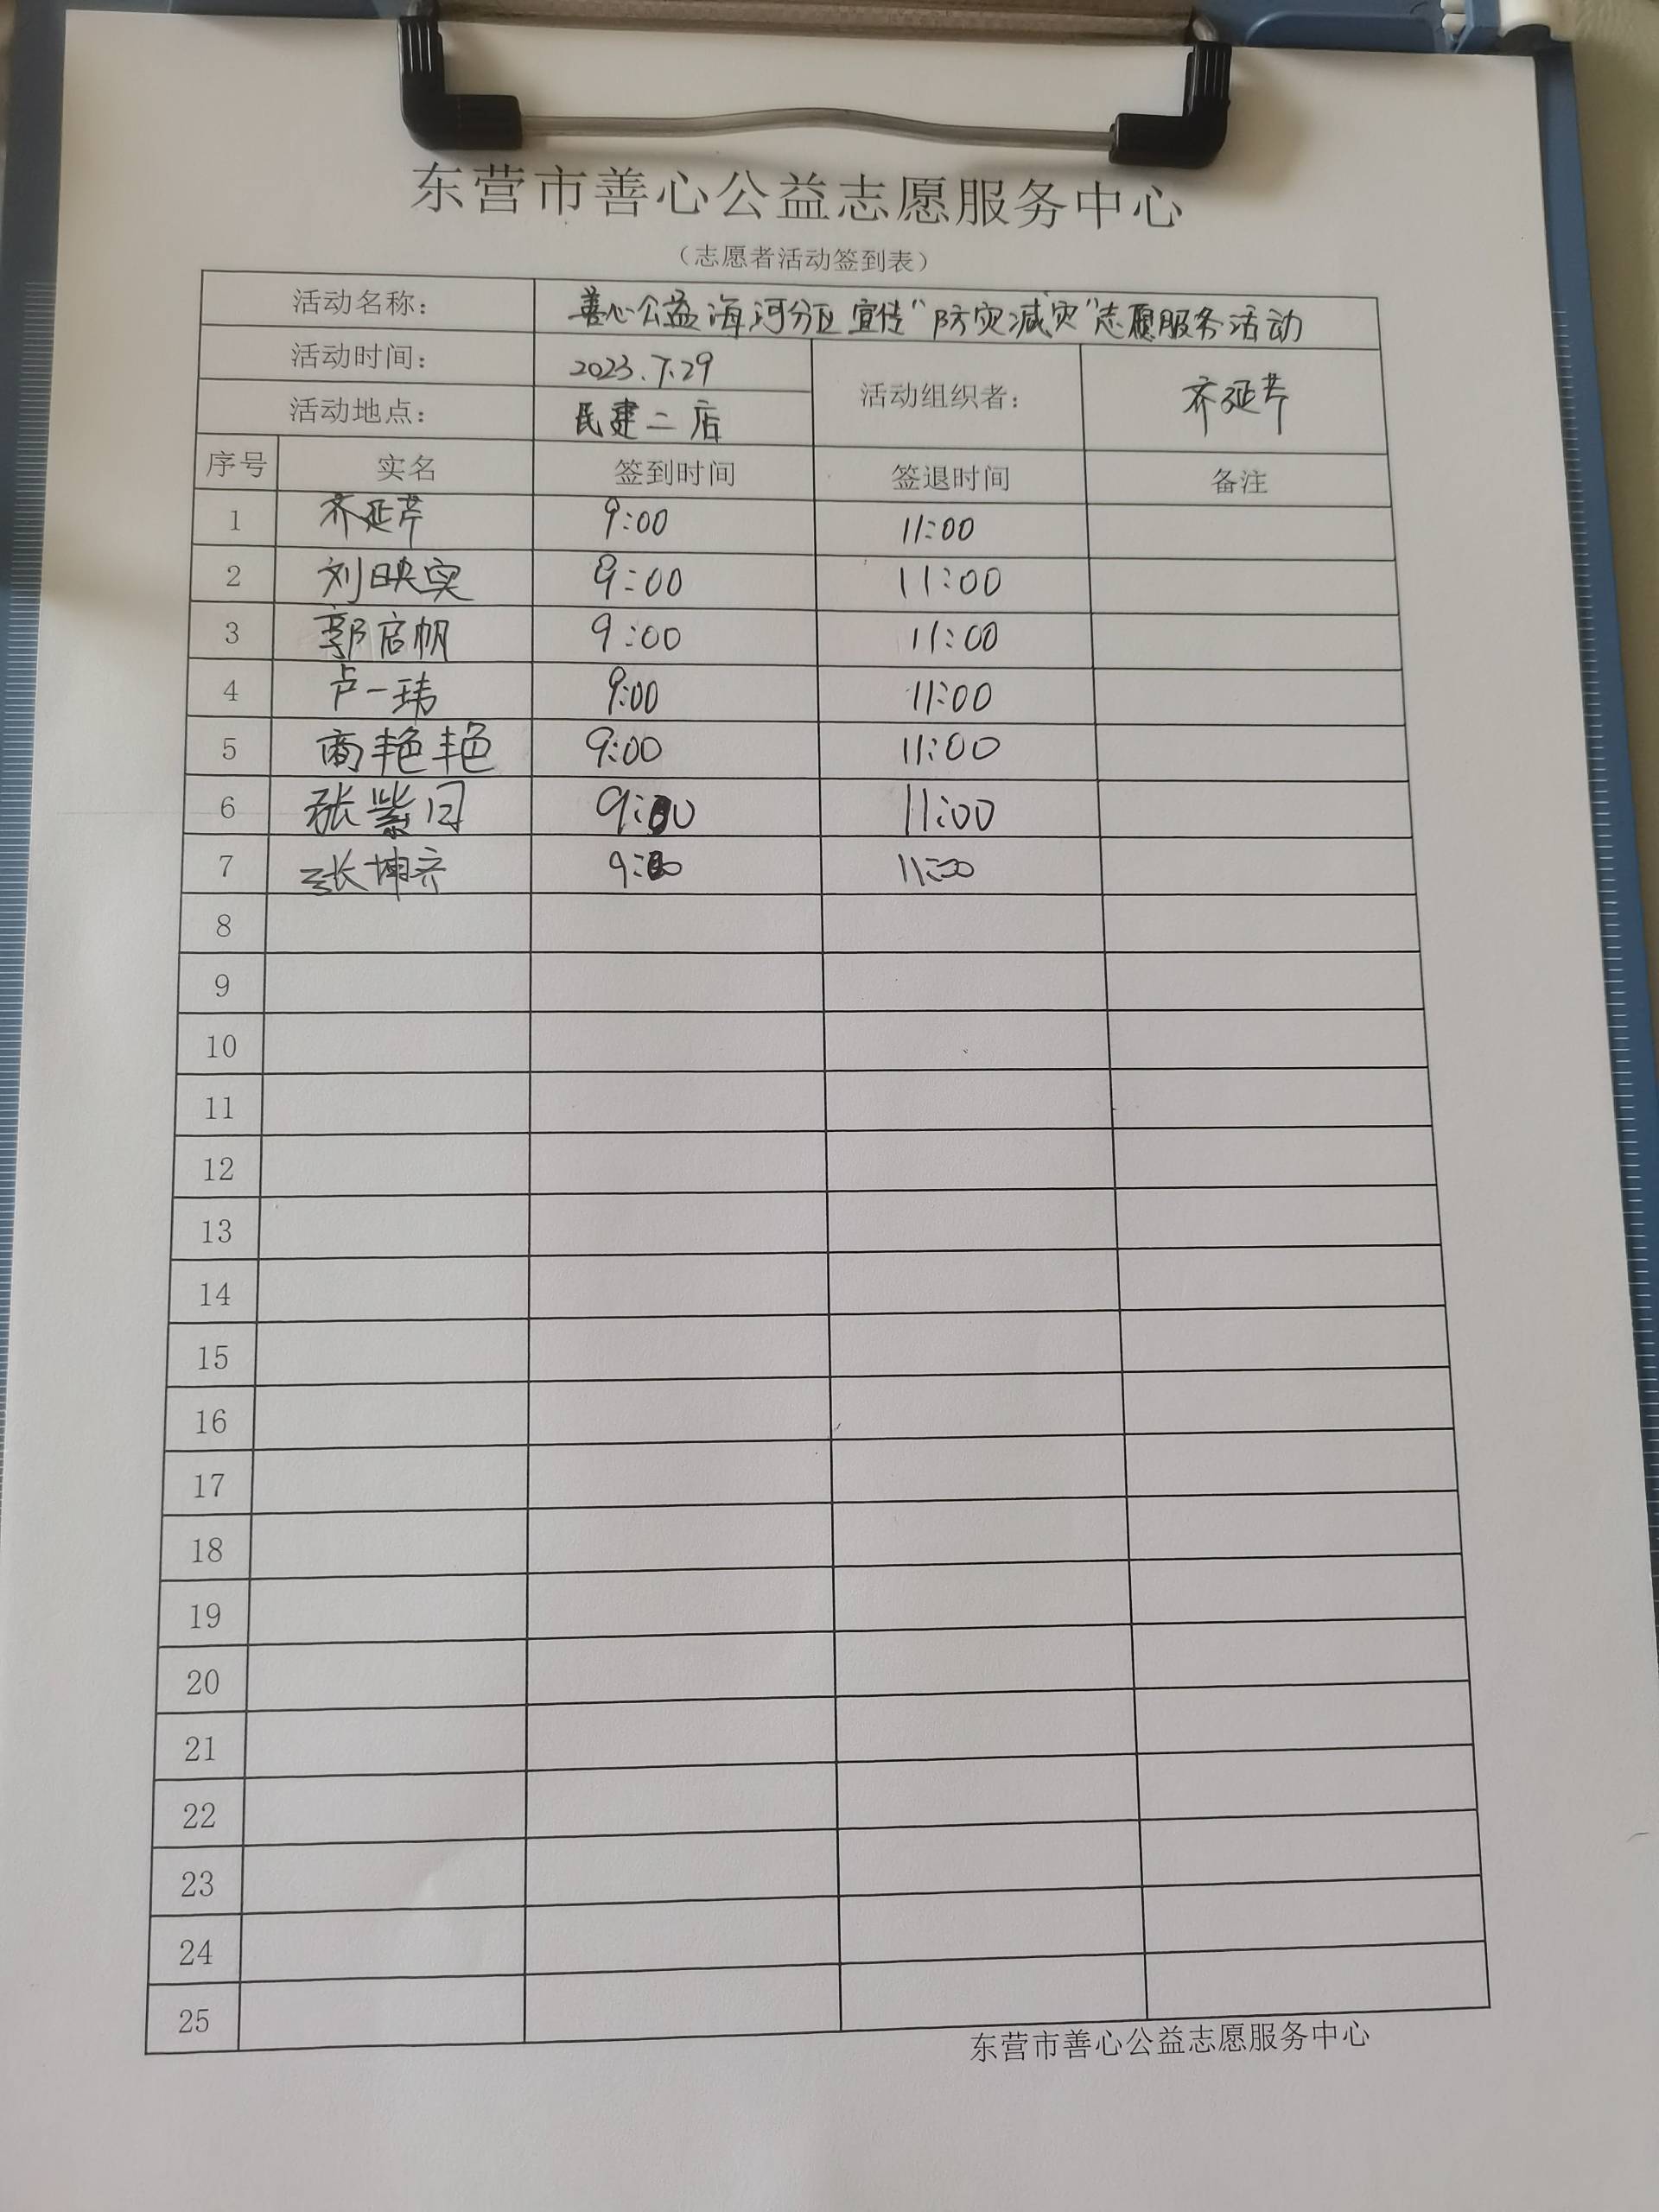 东营市善心公益志愿服务中心
（志愿者活动签到表）
活动名称： 善心公益海河分区宣传“防灾减灾”志愿服务活动
活动时间： 2023.7.29 活动组织者： 齐延芹
活动地点： 民建二店
序号 实名 签到时间 签退时间 备注
1 齐延芹 9:00 11:00
2 刘映实 9:00 11:00
3 郭启帆 9:00 11:00
4 卢一玮 9:00 11:00
5 商艳艳 9:00 11:00
6 张紫 9:00 11:00
7 张坤齐 9:00 11:00
8
9
10
11
12
13
14
15
16
17
18
19
20
21
22
23
24
25
东营市善心公益志愿服务中心